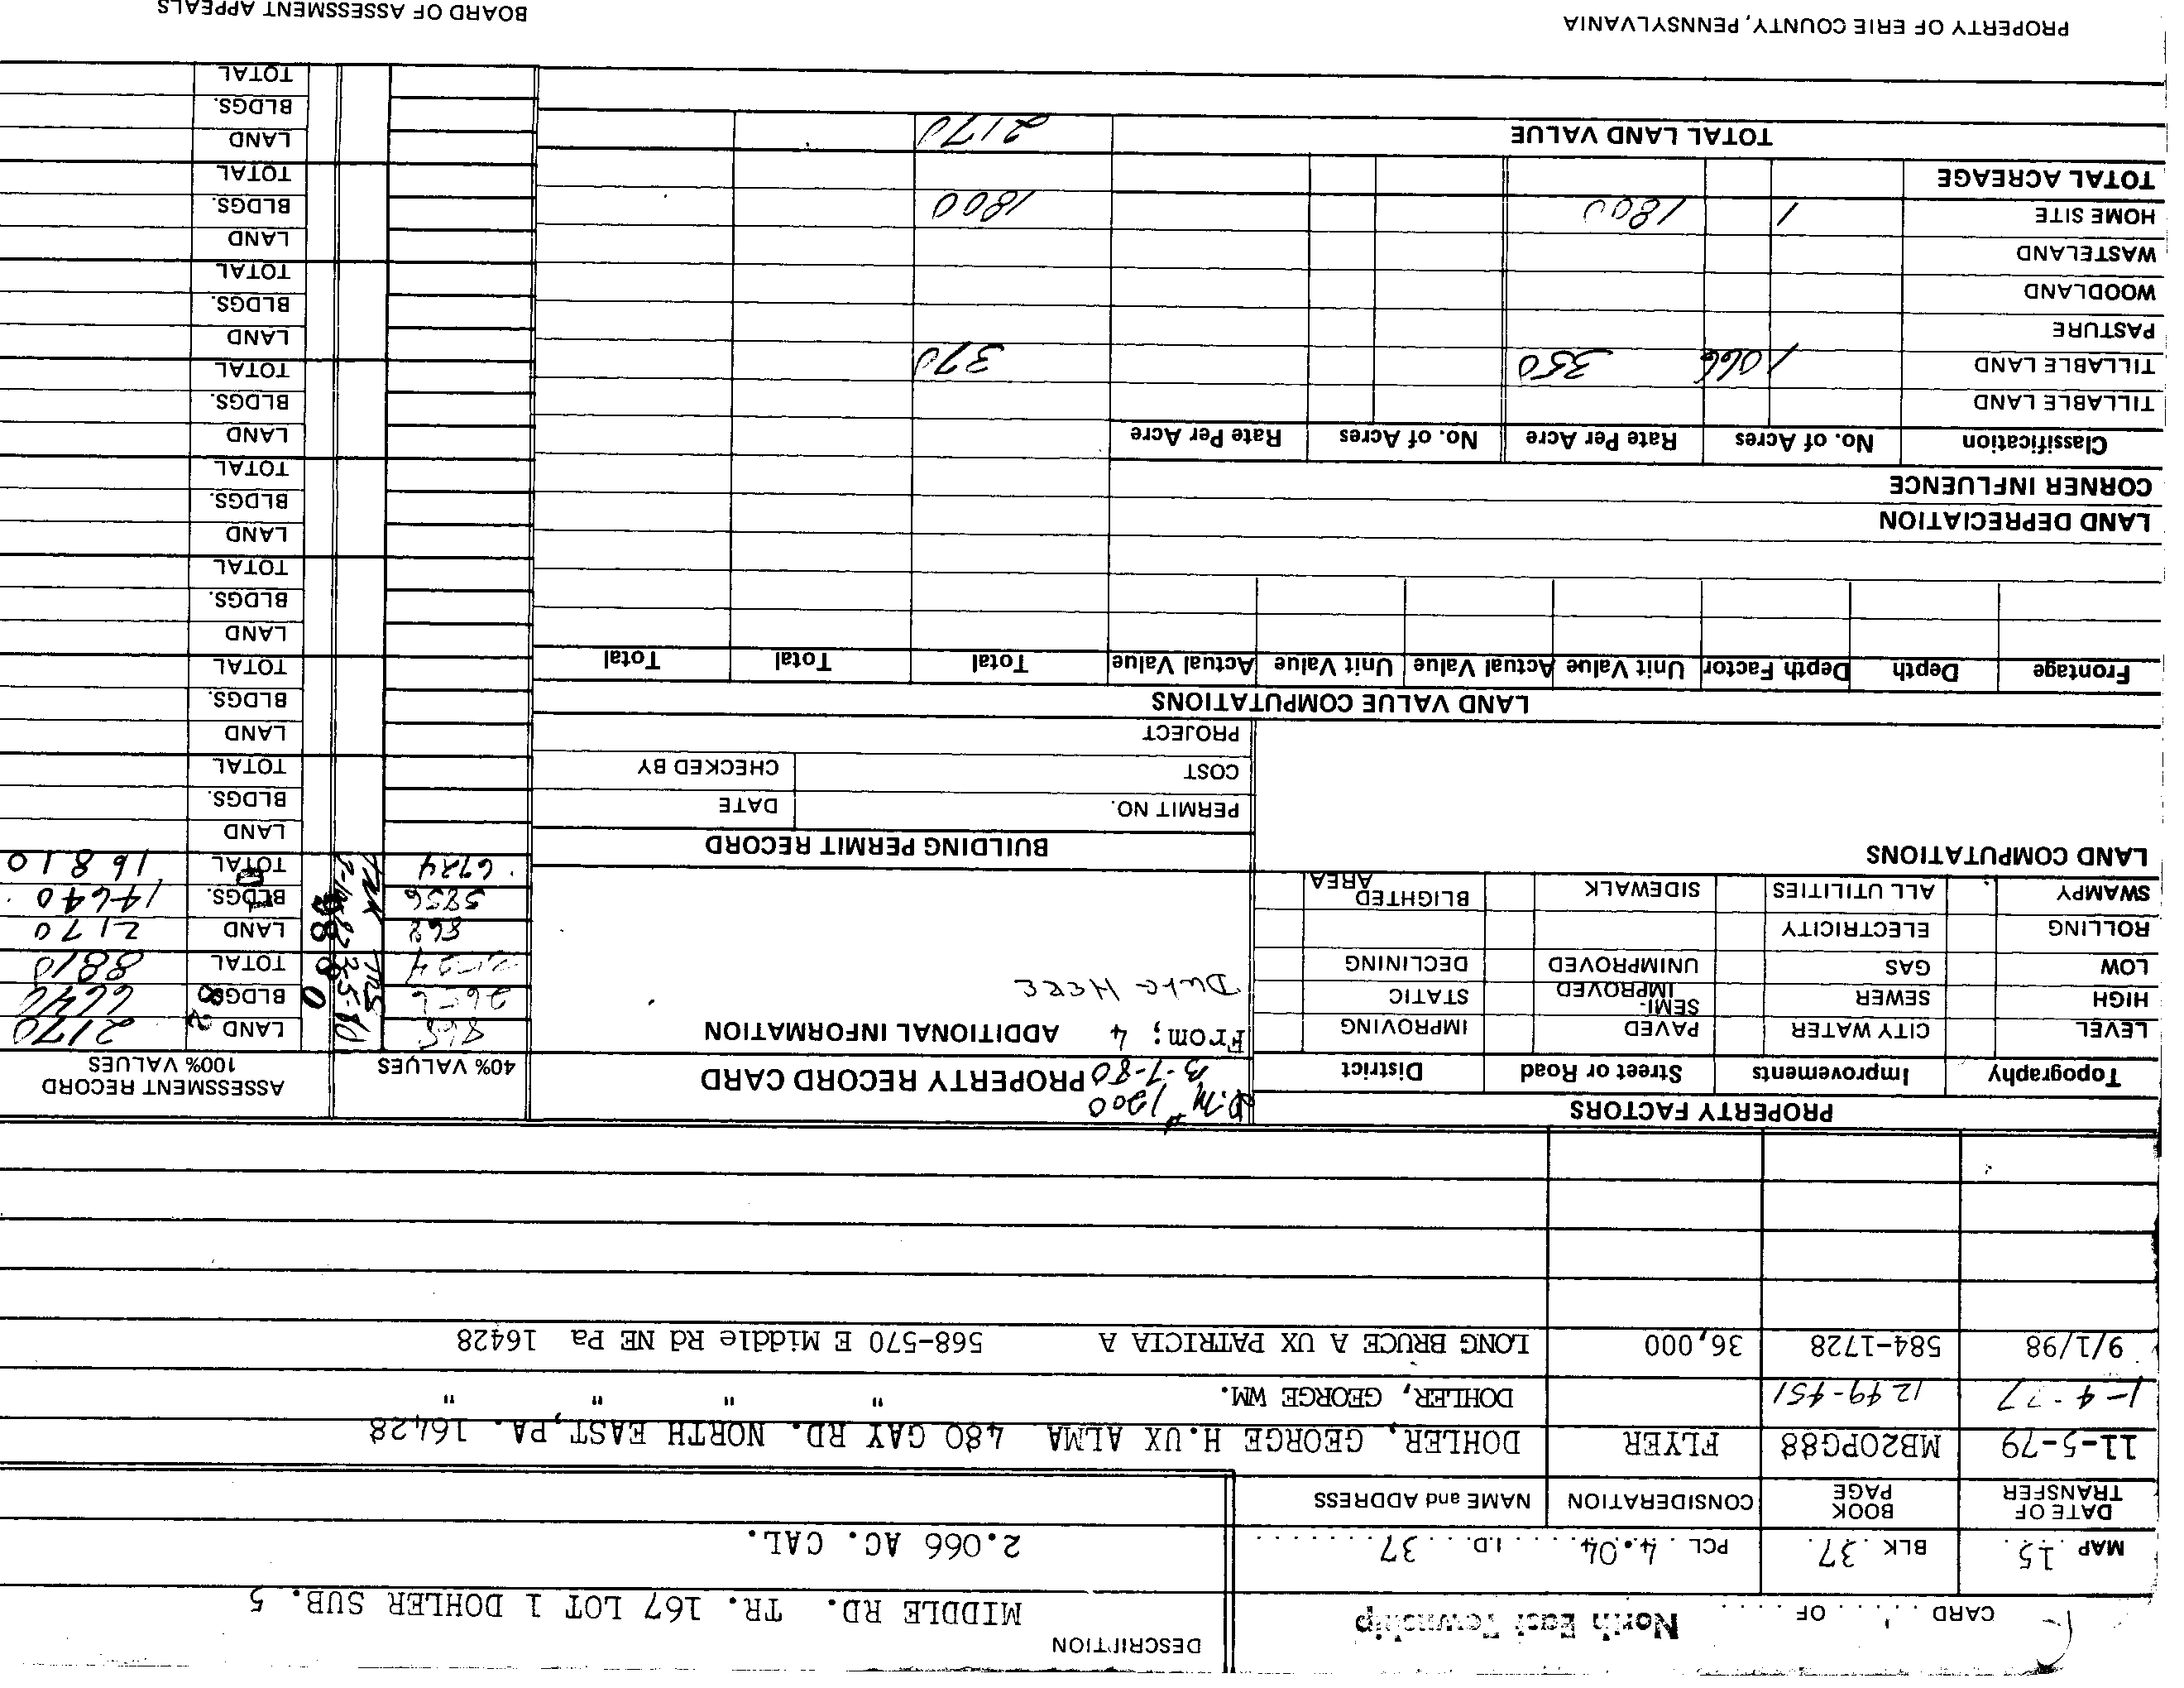 CARD . . . . . OF . . . . .
North East Township
DESCRIPTION
MIDDLE RD. TR. 167 LOT 1 DOHLER SUB. 5
2.066 AC. CAL.
MAP 15. BLK 37. PCL. 4.04. I.D. 37
DATE OF TRANSFER BOOK PAGE CONSIDERATION NAME and ADDRESS
11-5-79 MB20PG88 FLYER DOHLER, GEORGE H.UX ALMA 480 GAY RD. NORTH EAST,PA. 16428
1-4-77 1249-451 DOHLER, GEORGE WM. " " " "
9/1/98 584-1728 36,000 LONG BRUCE A UX PATRICIA A 568-570 E Middle Rd NE Pa 16428
PROPERTY FACTORS
Topography Improvements Street or Road District
LEVEL CITY WATER PAVED IMPROVING
HIGH SEWER SEMI-IMPROVED STATIC
LOW GAS UNIMPROVED DECLINING
ROLLING ELECTRICITY
SWAMPY ALL UTILITIES SIDEWALK BLIGHTED AREA
LAND COMPUTATIONS
1200
PROPERTY RECORD CARD
From; 4 ADDITIONAL INFORMATION
HERE
BUILDING PERMIT RECORD
PERMIT NO. DATE
COST CHECKED BY
PROJECT
40% VALUES
ASSESSMENT RECORD
100% VALUES
868 LAND 2170
BLDGS. 6640
TOTAL 8810
868 LAND 2170
5856 BLDGS. 14640
6724 TOTAL 16810
LAND
BLDGS.
TOTAL
LAND
BLDGS.
TOTAL
LAND
BLDGS.
TOTAL
LAND
BLDGS.
TOTAL
LAND
BLDGS.
TOTAL
LAND
BLDGS.
TOTAL
LAND
BLDGS.
TOTAL
LAND
BLDGS.
TOTAL
LAND VALUE COMPUTATIONS
Frontage Depth Depth Factor Unit Value Actual Value Unit Value Actual Value Total Total Total
LAND DEPRECIATION
CORNER INFLUENCE
Classification No. of Acres Rate Per Acre No. of Acres Rate Per Acre
TILLABLE LAND
TILLABLE LAND 1 066 350 370
PASTURE
WOODLAND
WASTELAND
HOME SITE 1 1800 1800
TOTAL ACREAGE
TOTAL LAND VALUE 2170
PROPERTY OF ERIE COUNTY, PENNSYLVANIA
BOARD OF ASSESSMENT APPEALS